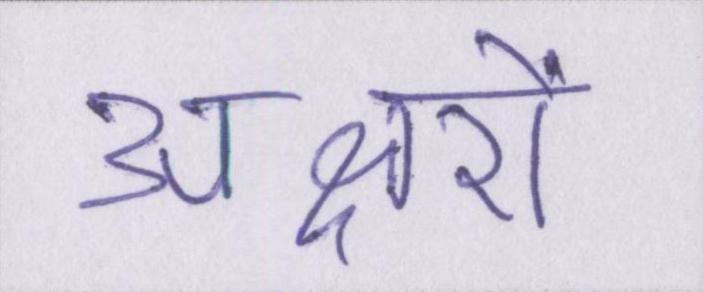 अक्षरों